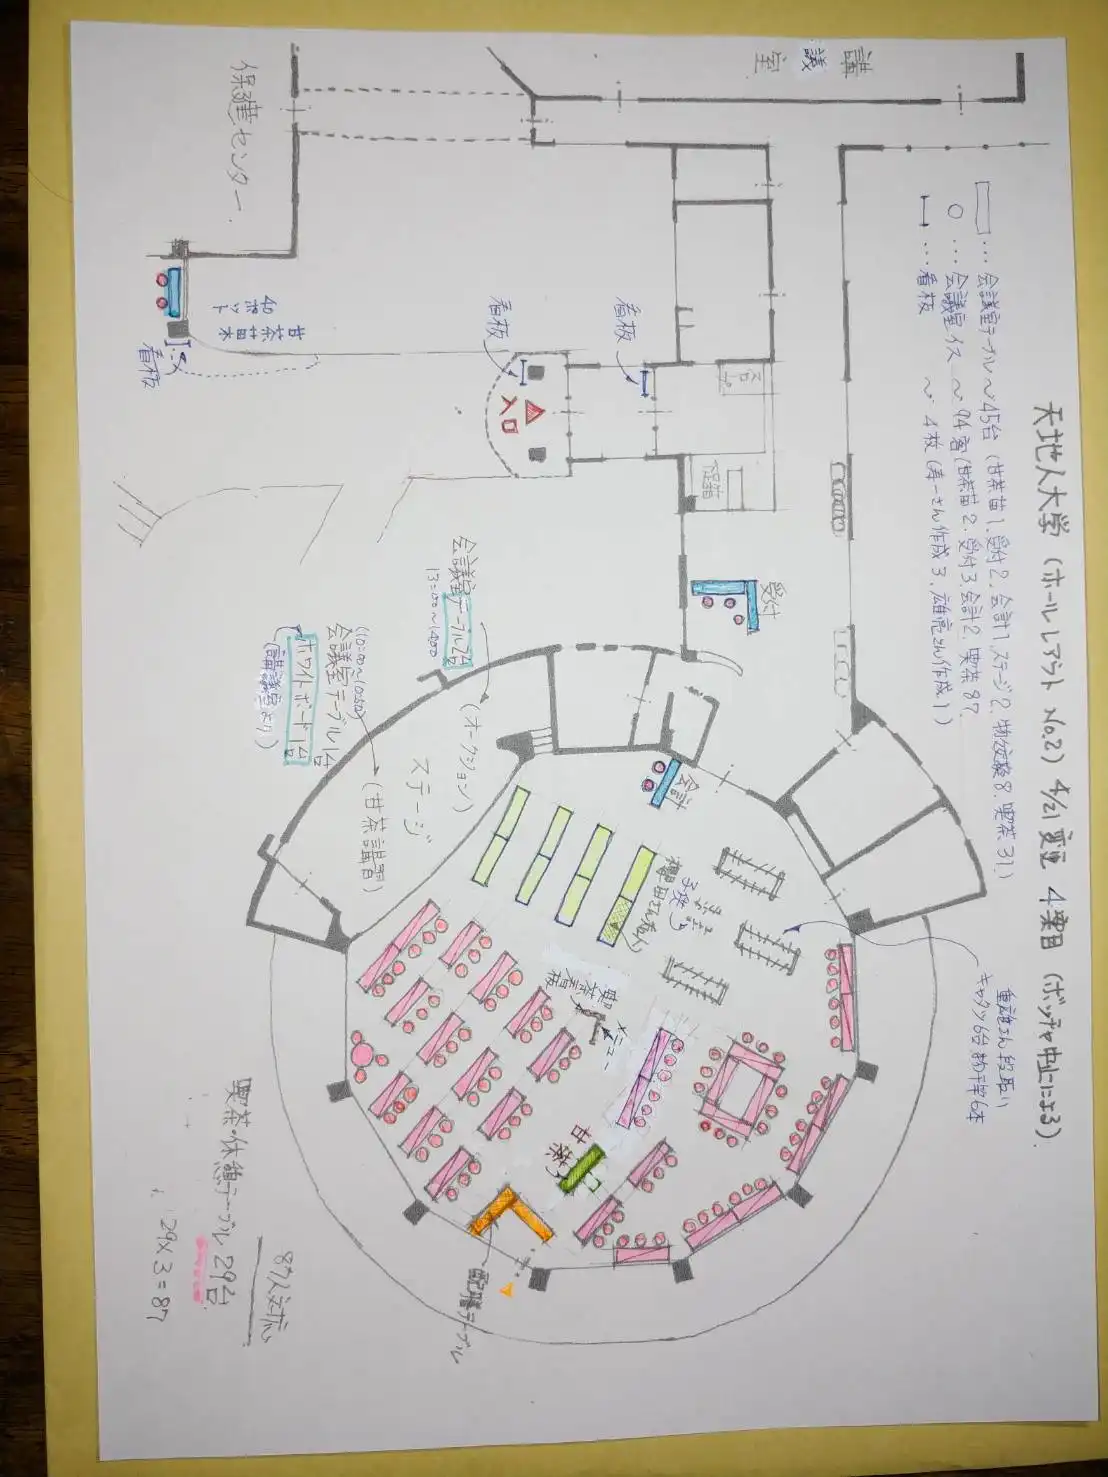 天地人大学（ホールレアウト No.2）4/21変更 4乗目（ボッチャ中止による）
…会議室テーブル〜45台（甘茶苗1、受付2、会計1、ステージ2、物交換8、喫茶31）
○…会議室イス 〜94客（甘茶苗2、受付3、会計2、喫茶87）
…看板 〜4枚（寿一さん作成3、雄亮さん作成1）
講議室
保建センター
甘茶苗木
40ポット
看板
看板
看板
入口
下足箱
受付
会議室テーブル2台
13:00〜14:00
（オークション）
ステージ
（甘茶講習）
(10:00〜10:50)
会議室テーブル1台
ホワイトボード1台
（講議室より）
会計
子供
喫茶看板
メニュー
甘茶
配膳テーブル
キャタツ6台 物干竿6本
喫茶・休憩テーブル 29台
87人対応
29×3=87